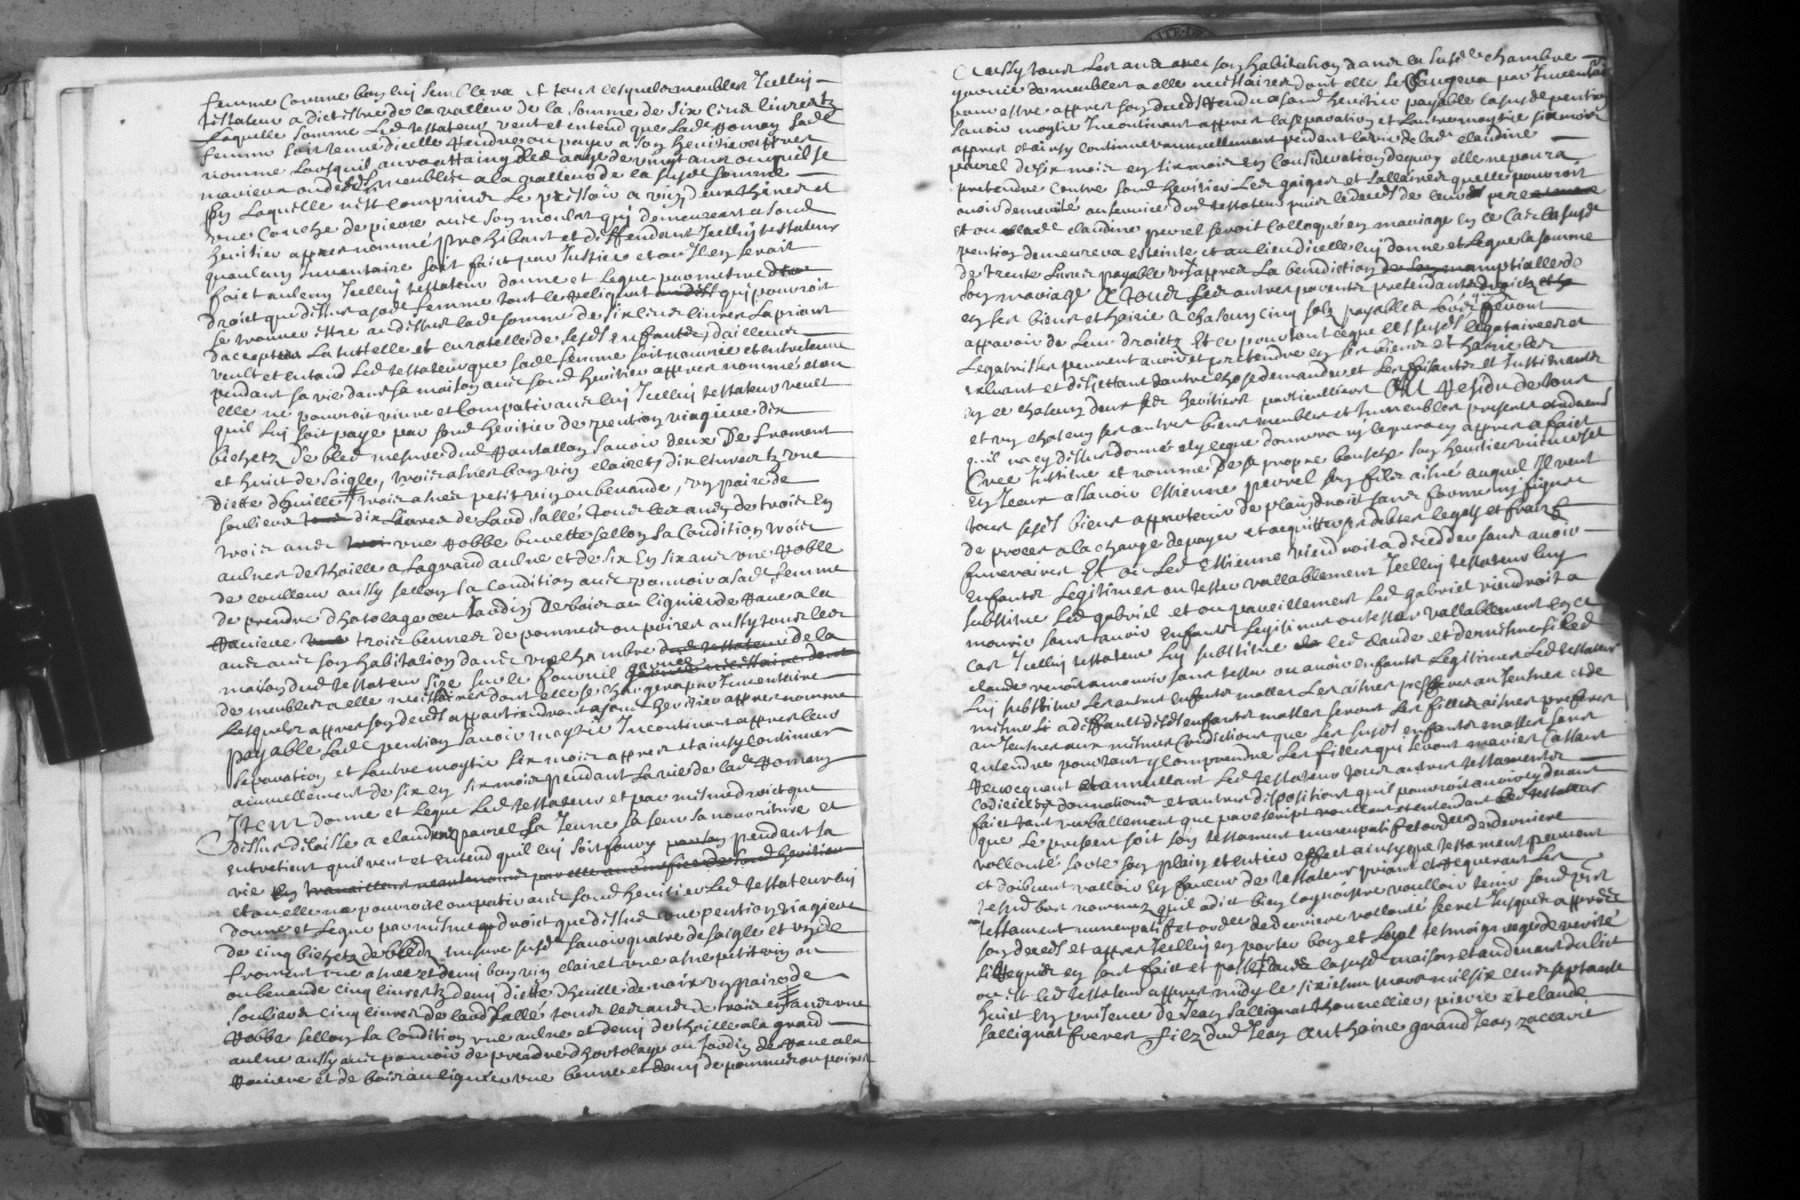 femme comme bon luy semblera et tous lesquels meubles Icelluy
testateur a dict estre de la valleur de la somme de six cens livres tz
Laquelle somme Led testateur veut et entend que Lade Romany sade
femme soit tenue dicelle Rendre ou payer a son heritier apres
nomme Lorsquil aura attaint Led aage de vingt ans ou quil se
mariera ou desds meubles a la valleur de la susde somme
En Laquelle nest comprins Le pressoir a vin deux thines et
une Conche de pierre avec son moulat qui demeureront a sond
heritier appres nommé prohibant et deffendant Icelluy testateur
quaulcung Inventaire soit faict par Justice et ou Il en seroit
faict aulcung Icelluy testateur donne et Legue par mesme
droict que dessus a sade femme tout le Reliquat qui pourroit
se trouver estre au dessus lade somme de six cens livres La priant
daccepter La tuttelle et curatelle de sesds enffantz, dailleurs
veult et entand Led testateur que sade femme soit nourrie et entretenue
pendant sa vie dans sa maison avec sond heritier appres nommé et ou
elle ne pourroit vivre et Compatir avec luy Icelluy testateur veult
quil Luy soit payé par sond heritier de pention viagiere dix
bichetz de bled mesure dud Nantallon savoir deux de froment
et huict de soigle, trois asnes bon vin clairet, dix livres tz une
diette dhuille, trois asnes petit vin ou beuande, un paire de
soulierz dix Livres de Lard sallé tous les ans de trois En
trois ans une Robbe burette sellon sa Condition trois
aulnes de thoille a Lagrand aulne et de six En six ans une Robbe
de coulleur aussy sellon sa condition avec pouvoir a sade femme
de prendre dhortolage au Jardin de bois au lignier de Rave a la
Raviere trois bennes de pommes ou poires aussy tous les
ans avec son habitation dans une chambre de la
maison dud testateur size sur le fournil garnie
de meubles a elle necessaires dont elle se chargera par Inventaire
Lesquels appres son decedz appartiendront a sond heritier appres nomme
payable Lade pention savoir moytie Incontinant appres leur
separation et Lautre moytie six mois appres et ainsy continuer
annuellement de six en six mois pendant La vie de lade Romany
Item donne et Legue Led testateur et par mesme droict que
dessus delaisse a claudine parrel La Jeune sa seur sa nourriture et
entretient quil veut et entend quil luy soit fourny pendant sa
vie
et ou elle ne pourroit compatir avec sond heritier Led testateur luy
donne et Legue par mesme droict que dessus une pention viagiere
de cinq bichetz de bledz mesure susde savoir quatre de soigle et ung de
froment une asnee et demy bon vin clairet une asne petit vin ou
ou beuande cinq livres tz demy diette dhuille de noix ung paire de
soulierz cinq livres de lard salle tous les ans de trois en trois ans une
Robbe sellon sa Condition une aulne et demy de thoille a la grand
aulne aussy avec pouvoir de prendre dhortolage au Jardin de Rave a la
Raviere et de bois au lignier une benne et demy de pommes ou poires
Aussy tous Les ans avec son habitation dans la susde chambre
garnie de meubles a elle necessaires dont elle se chargera par Inventaire
pour estre appres son decedz Rendu a sond heritier payable lasusde pention
savoir moytie Incontinant appres la separation et Lautre moytie six mois
appres et ainsy continuer annuellement pendent la vie de lade claudine
parrel de six mois en six mois En Consideration dequoy elle ne pourra
pretendre contre sond heritier Les gaiges et sallaires quelle pourroit
avoir demerité au service dud testateur puis le decedz de leurd pere
et ou lade claudine parrel seroit Colloqué en mariage En ce Cas lasusde
pention demeurera esteinte et au lieu dicelle luy donne et Legue la somme
de trente Livres payable appres La benediction de
son mariage A tous Les autres parentz pretendantz droictz
en ses biens et hoirie a chascun cinq solz payables Lors quil feront
apparoir de Leur droictz Et ce pour tout ce que les susds legataires et
Legatristes peuvent avoir et pretendre en ses biens et hoirie les
excluant et dejettant dautre chose demander et Les faisantz et Instituantz
en ce chascun deux ses heritiers particulliers Au Residu de tous
et ung chascun ses autres biens meubles et Immeubles presents et advenir
quil na cy dessus donné et legue donnera ny leguera cy appres a faict
Créé Institue et nomme de sa propre bouche son heritier universel
En Iceux assavoir Estienne parrel son filz aisné auquel Il veut
tous sesds biens appartenir de plain droict sans forme ny figure
de proces a la charge de payer et acquitter ses debtes legatz et frais
funeraires Et ou Led Estienne viendroit a decedder sans avoir
enfantz Legitimes ou tester vallablement Icelluy testateur luy
substitue Led gabriel et ou pareillement Led gabriel viendroit a
mourir sans avoir Enfantz Legitimes ou tester vallablement En ce
cas Icelluy testateur luy substitue led claude et de mesme si led
claude venoit a mourir sans tester ou avoir enfantz Legitimes Led testateur
luy substitue Les autres enfantz masles Les aisnes preferes au Jeusnes et de
mesme si a deffault desds enfantz masles seront Les filles aisnes preferees
au Jeusnes aux mesmes Conditions que Les susds enfantz masles sans
entendre pourtant y comprendre Les filles qui seront mariees Cassant
Revocquant et annullant Led testateur tous autres testamentz
codicilles donnations et autres dispositions quil pourroit avoir cy devant
faict tant verballement que par escript voullant et entendant led testateur
que Le present soit son testament nuncupatif et ordre de derniere
vollonté sorte son plain et entier effect ainsy que testament peuvent
et doibvent valloir En faveur de testateur priant et Requerant Les
tesmd bas nommez quil a dict bien Cognoistre voulloir tenir sond pnt
testament nuncupatif et ordre de derniere vollonté secret Jusques appres
son decedz et appres Icelluy en porter bon et Loyal tesmoignage de verité
si Requis en sont faict et passé dans la susde maison et au devant du lict
ou est Led testateur appres midy le sixiesme mars mil six cens septante
huict En presence de Jean sallignat thonnellier, pierre et claude
sallignat freres filz dud Jean Anthoine grand Jean zaccarie